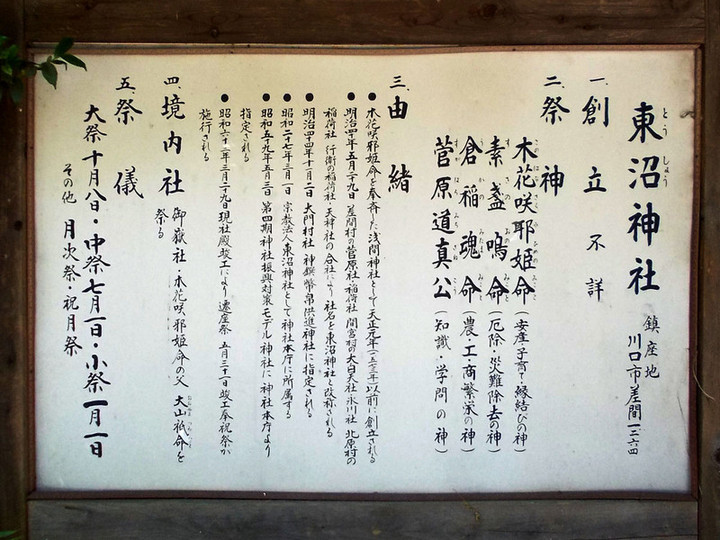 東沼神社
とうしょう
鎮座地
川口市差間一二六四
一、創立不詳
二、祭神
木花咲耶姫命(安産・子育て・縁結びの神)
素盞嗚命(厄除・災難除去の神)
倉稲魂命(農・工・商繁栄の神)
菅原道真公(知識・学問の神)
三、由緒
●木花咲耶姫命を奉斎した浅間神社として天正元年(一五七三年)以前に創立される
●明治四十年五月二十九日 差間村の菅原社・稲荷社 間宮村の大白天社・氷川社 北原村の
稲荷社 行衛の稲荷社・天神社の合社により 社名を東沼神社と改称される
●明治四十年十一月二日 大門村社 神饌幣帛供進神社に指定される
●昭和二十七年三月一日 宗教法人東沼神社として神社本庁に所属する
●昭和五十九年五月三日 第四期神社振興対策モデル神社に神社本庁より
指定される
●昭和六十二年三月二十九日現社殿竣工により 遷座祭 五月三十一日竣工奉祝祭が
施行される
四、境内社 御嶽社・木花咲耶姫命の父 大山祇命を
祭る
五、祭儀
大祭十月八日・中祭七月一日・小祭一月一日
その他 月次祭・祝月祭